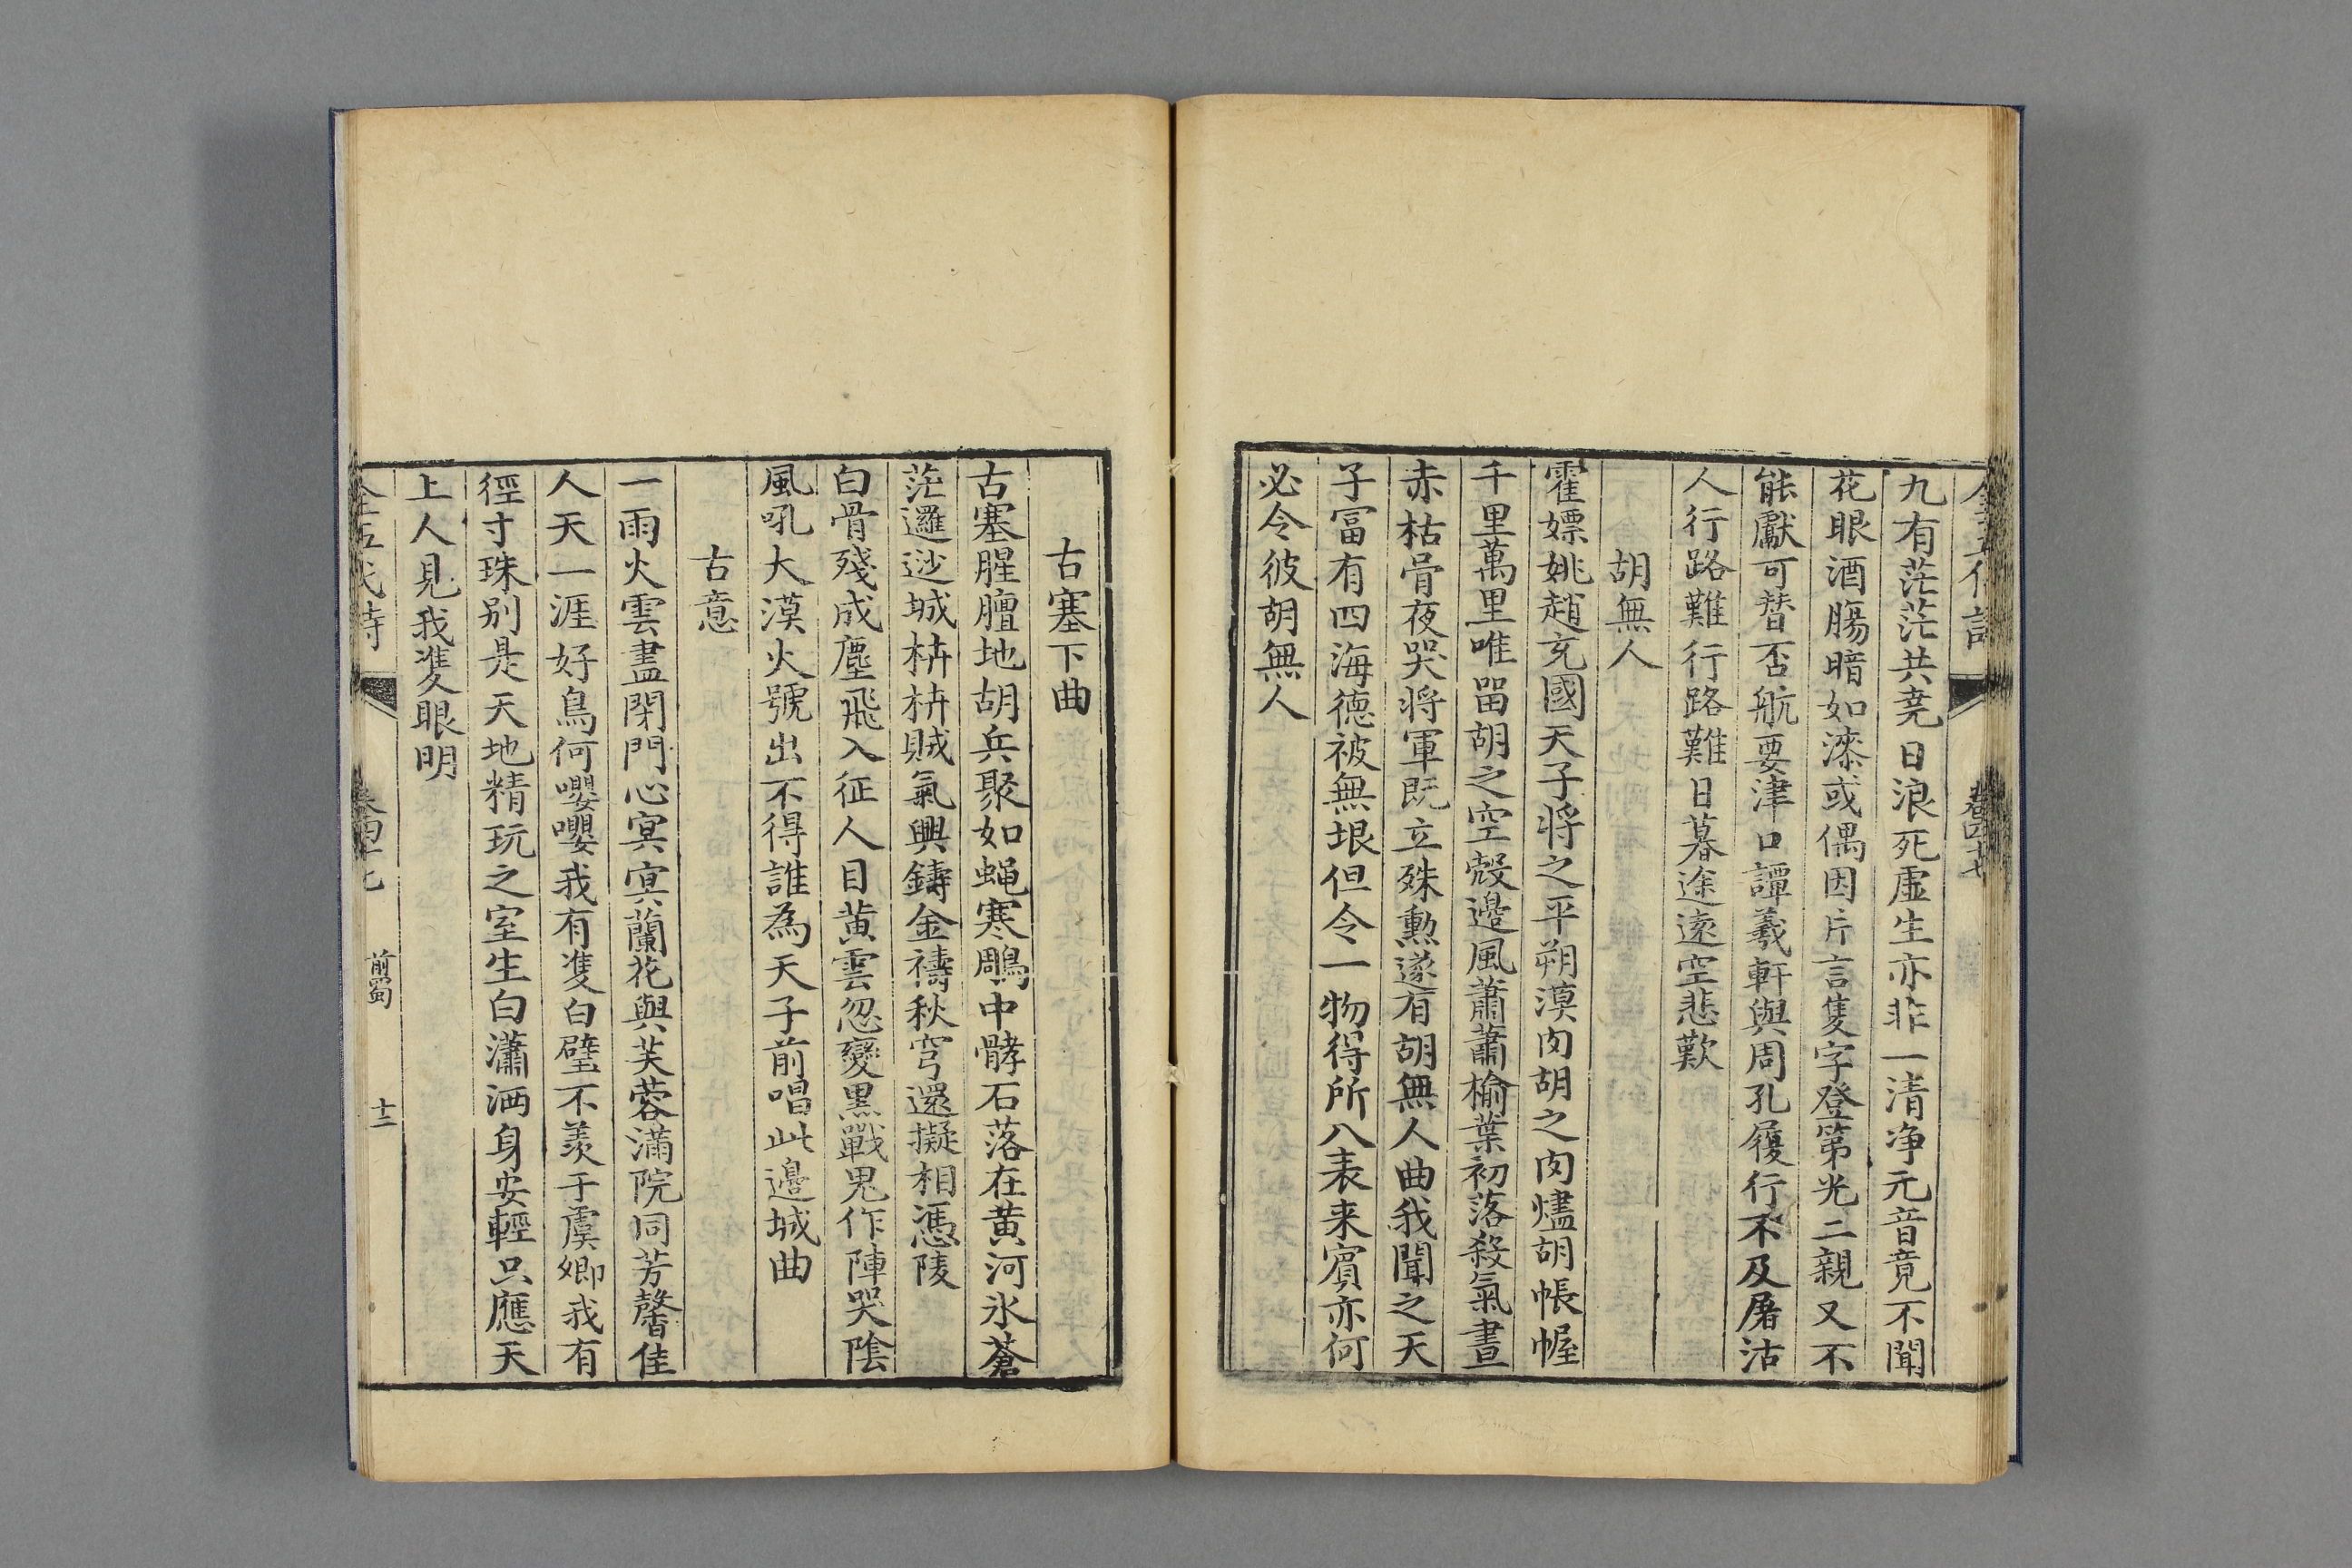 全五代詩
卷四十七
九有茫茫共堯日浪死虛生亦非一清净元音竟不聞
花眼酒腸暗如漆或偶因片言隻字登第光二親又不
能獻可替否航要津口譚羲軒與周孔履行不及屠沽
人行路難行路難日暮途遠空悲歎
胡無人
霍嫖姚趙充國天子將之平朔漠肉胡之肉燼胡帳幄
千里萬里唯留胡之空殻邊風蕭蕭榆葉初落殺氣晝
赤枯骨夜哭將軍既立殊勳遂有胡無人曲我聞之天
子富有四海德被無垠但令一物得所八表来賓亦何
必令彼胡無人
古塞下曲
古塞腥膻地胡兵聚如蝇寒鵰中髇石落在黄河氷蒼
茫邏逤城枿枿賊氣興鑄金禱秋穹還擬相憑陵
白骨殘成塵飛入征人目黄雲忽變黒戰鬼作陣哭陰
風吼大漠火號出不得誰為天子前唱此邊城曲
古意
一雨火雲盡閉門心冥冥蘭花與芙蓉滿院同芳馨佳
人天一涯好鳥何嚶嚶我有雙白璧不羨于虞卿我有
徑寸珠别是天地精玩之室生白瀟洒身安輕只應天
上人見我雙眼明
全五代詩
卷四十七
前蜀
十二